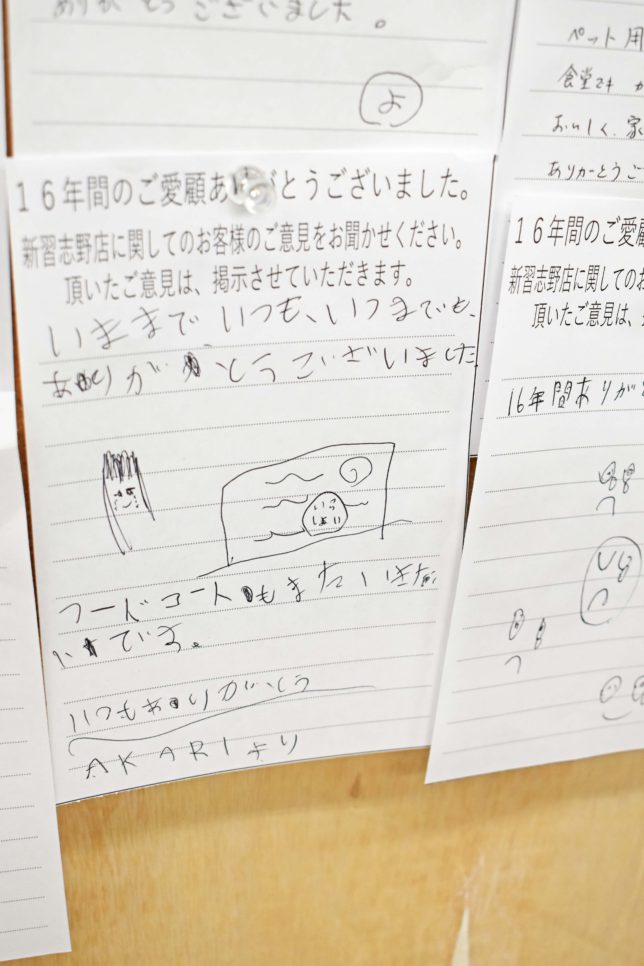 ありがとうございました。
よ
１６年間のご愛顧ありがとうございました。
新習志野店に関してのお客様のご意見をお聞かせください。
頂いたご意見は、掲示させていただきます。
いままで、いつも、いつまでも、
ありがとうございました
いっ
しょい
フードコートもまたいきた
いです。
いつもありがとう
AKARIより
ペット用
食堂でも か
おいしく、家
ありがとうご
１６年間のご愛顧
新習志野店に関してのお
頂いたご意見は、
16年間ありがと